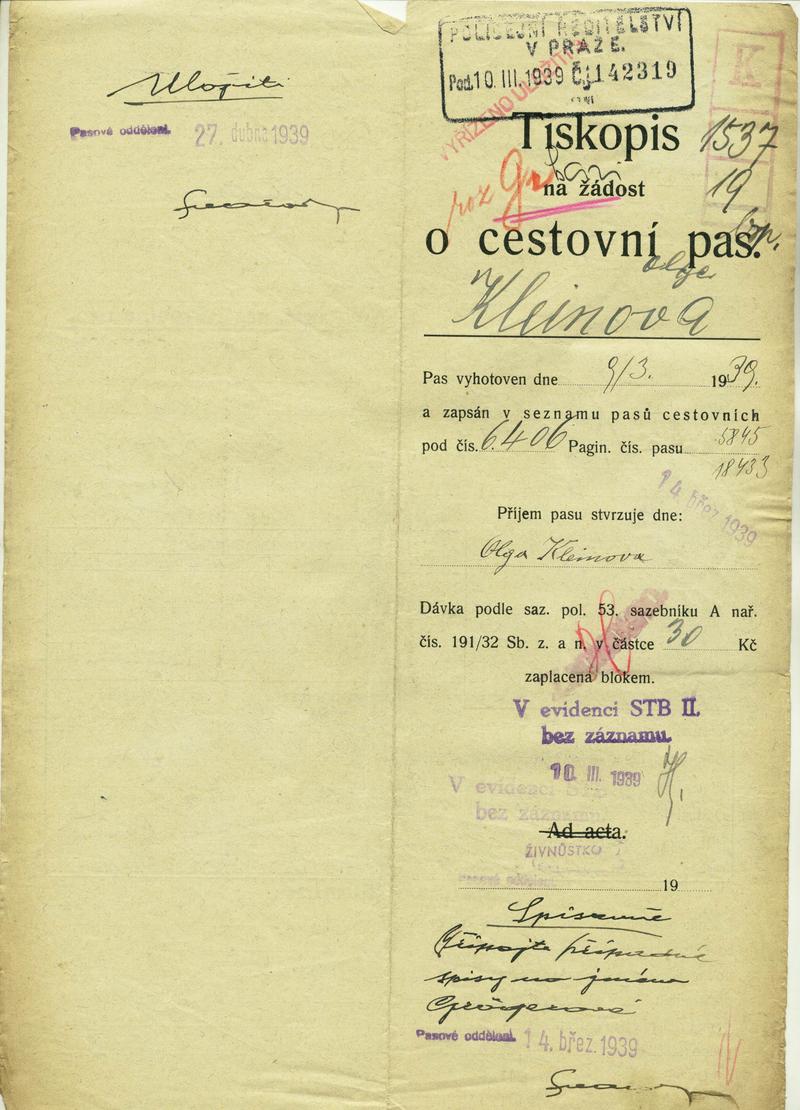 Uložiti
Pasové oddělení. 27. dubna 1939
POLICEJNÍ ŘEDITELSTVÍ
V PRAZE.
Pod. 10. III. 1939 Čj. 142319
VYŘÍZENO
K
Tiskopis 1537
na žádost 19
o cestovní pas.
Olga
Kleinova
Pas vyhotoven dne 9/3. 1939.
a zapsán v seznamu pasů cestovních
pod čís. 6.406 Pagin. čís. pasu 5845
18433
14. břez. 1939
Příjem pasu stvrzuje dne:
Olga Kleinova
Dávka podle saz. pol. 53. sazebníku A nař.
čís. 191/32 Sb. z. a n. v částce 30 Kč
zaplacena blokem.
V evidenci STB II.
bez záznamu.
10. III. 1939
V evidenci STB
bez záznamu.
Ad acta.
ŽIVNŮSTKO
Pasové oddělení.
19
Spisovně
Připojte případné
spisy na jméno
Grögerová
Pasové oddělení. 14. břez. 1939